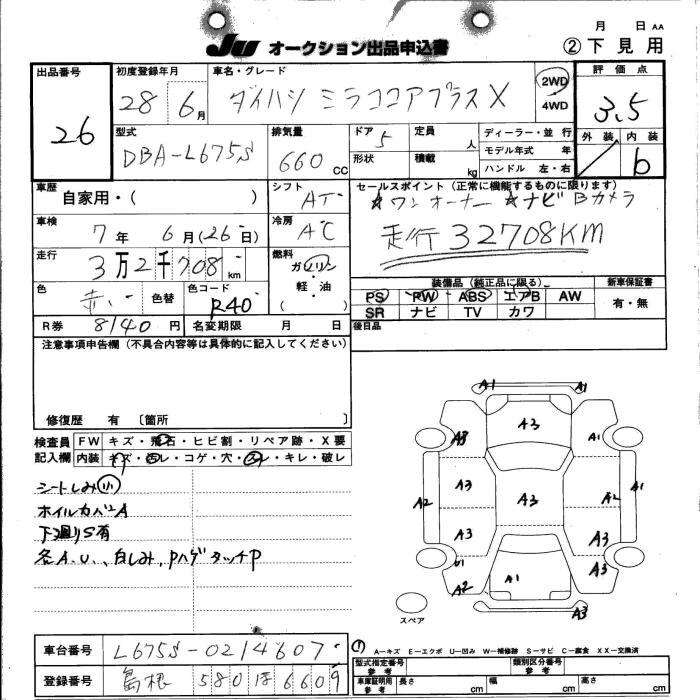 月 日 AA
JU オークション出品申込書 ②下見用
出品番号 26
初度登録年月 28年 6月
車名・グレード ダイハツ ミラココアプラスX
2WD
4WD
評価点 3.5
外装 内装 b
型式 DBA-L675S
排気量 660 cc
ドア 5
形状
定員 人
積載 kg
ディーラー・並行
モデル年式 年
ハンドル 左・右
車歴 自家用・( )
シフト AT
セールスポイント(正常に機能するものに限ります)
☆ワンオーナー ☆ナビ Bカメラ
走行 32708KM
車検 7年 6月(26日)
冷房 AC
走行 3万2千708 km
燃料 ガソリン・軽・油( )
色 赤 色替 色コード R40
装備品(純正品に限る) 新車保証書
PS PW ABS エアB AW 有・無
SR ナビ TV カワ
R券 8140円 名変期限 月 日
後日品
注意事項申告欄(不具合内容等は具体的に記入してください)
修復歴 有 〔箇所 〕
検査員記入欄
FW キズ・飛石・ヒビ割・リペア跡・X要
内装 キズ・汚レ・コゲ・穴・スレ・キレ・破レ
シートしみ(小)
ホイルカバーA
下廻りS有
各A.U.、白しみ、Pハゲ タッチP
A1 A1
A3
A8 A1
A3
A2 A3 A2 A1
A3 A3
U1 A3
A2 A1
A3
スペア
A-キズ E-エクボ U-凹み W-補修跡 S-サビ C-腐食 XX-交換済
車台番号 L675S-0214607
登録番号 島根 580 ほ 6609
型式指定番号 参考 類別区分番号 参考
車庫証明用 参考 長さ cm 幅 cm 高さ cm